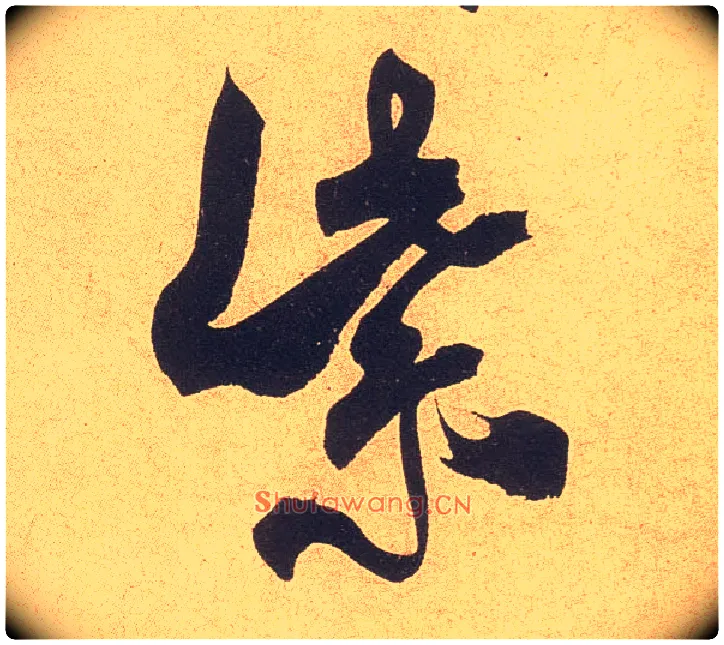 紫
Shufawang.CN